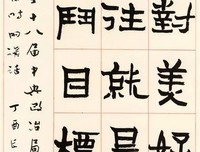 對美好
往就是
鬥目標
十八屆中央政治局
時的講話 丁酉